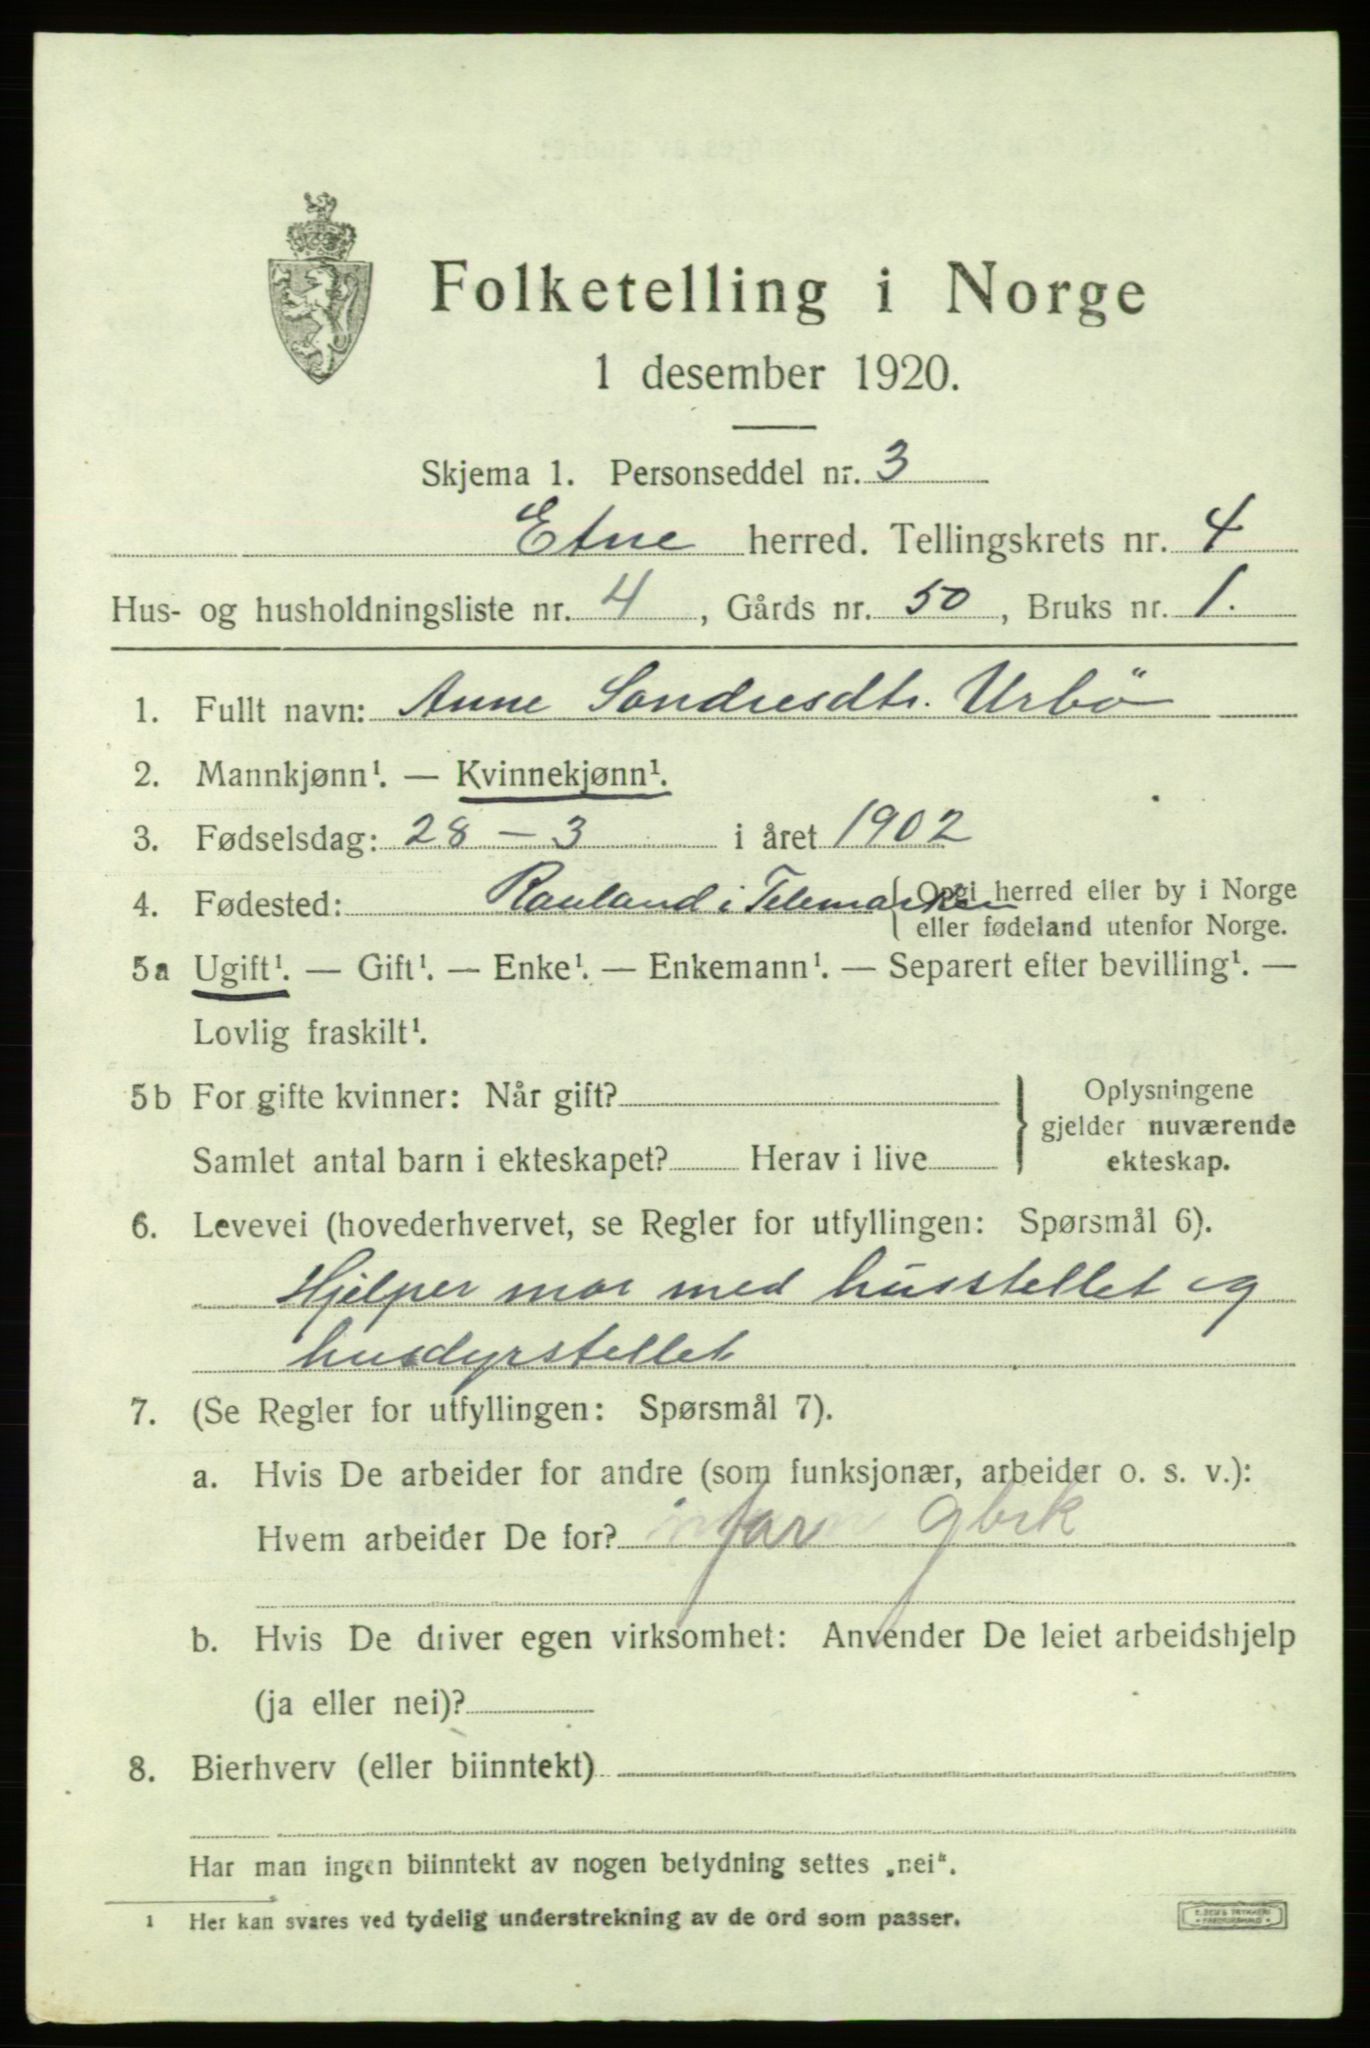 Folketelling i Norge
1 desember 1920.
Skjema 1. Personseddel nr. 3
Etne herred. Tellingskrets nr. 4
Hus- og husholdningsliste nr. 4, Gårds nr. 50, Bruks nr. 1.
1. Fullt navn: Anne Sondresdtr. Urbö
2. Mannkjønn¹. — Kvinnekjønn¹.
3. Fødselsdag: 28 – 3 i året 1902
4. Fødested: Rauland i Telemarken { Opgi herred eller by i Norge
eller fødeland utenfor Norge.
5a Ugift¹. — Gift¹. — Enke¹. — Enkemann¹. — Separert efter bevilling¹. —
Lovlig fraskilt¹.
5b For gifte kvinner: Når gift? } Oplysningene
gjelder nuværende
Samlet antal barn i ekteskapet? Herav i live ekteskap.
6. Levevei (hovederhvervet, se Regler for utfyllingen: Spørsmål 6).
Hjelper mor med husstellet og
husdyrstellet
7. (Se Regler for utfyllingen: Spørsmål 7).
a. Hvis De arbeider for andre (som funksjonær, arbeider o. s. v.):
Hvem arbeider De for? far gbrk
b. Hvis De driver egen virksomhet: Anvender De leiet arbeidshjelp
(ja eller nei)?
8. Bierhverv (eller biinntekt)
Har man ingen biinntekt av nogen betydning settes „nei“.
¹ Her kan svares ved tydelig understrekning av de ord som passer.